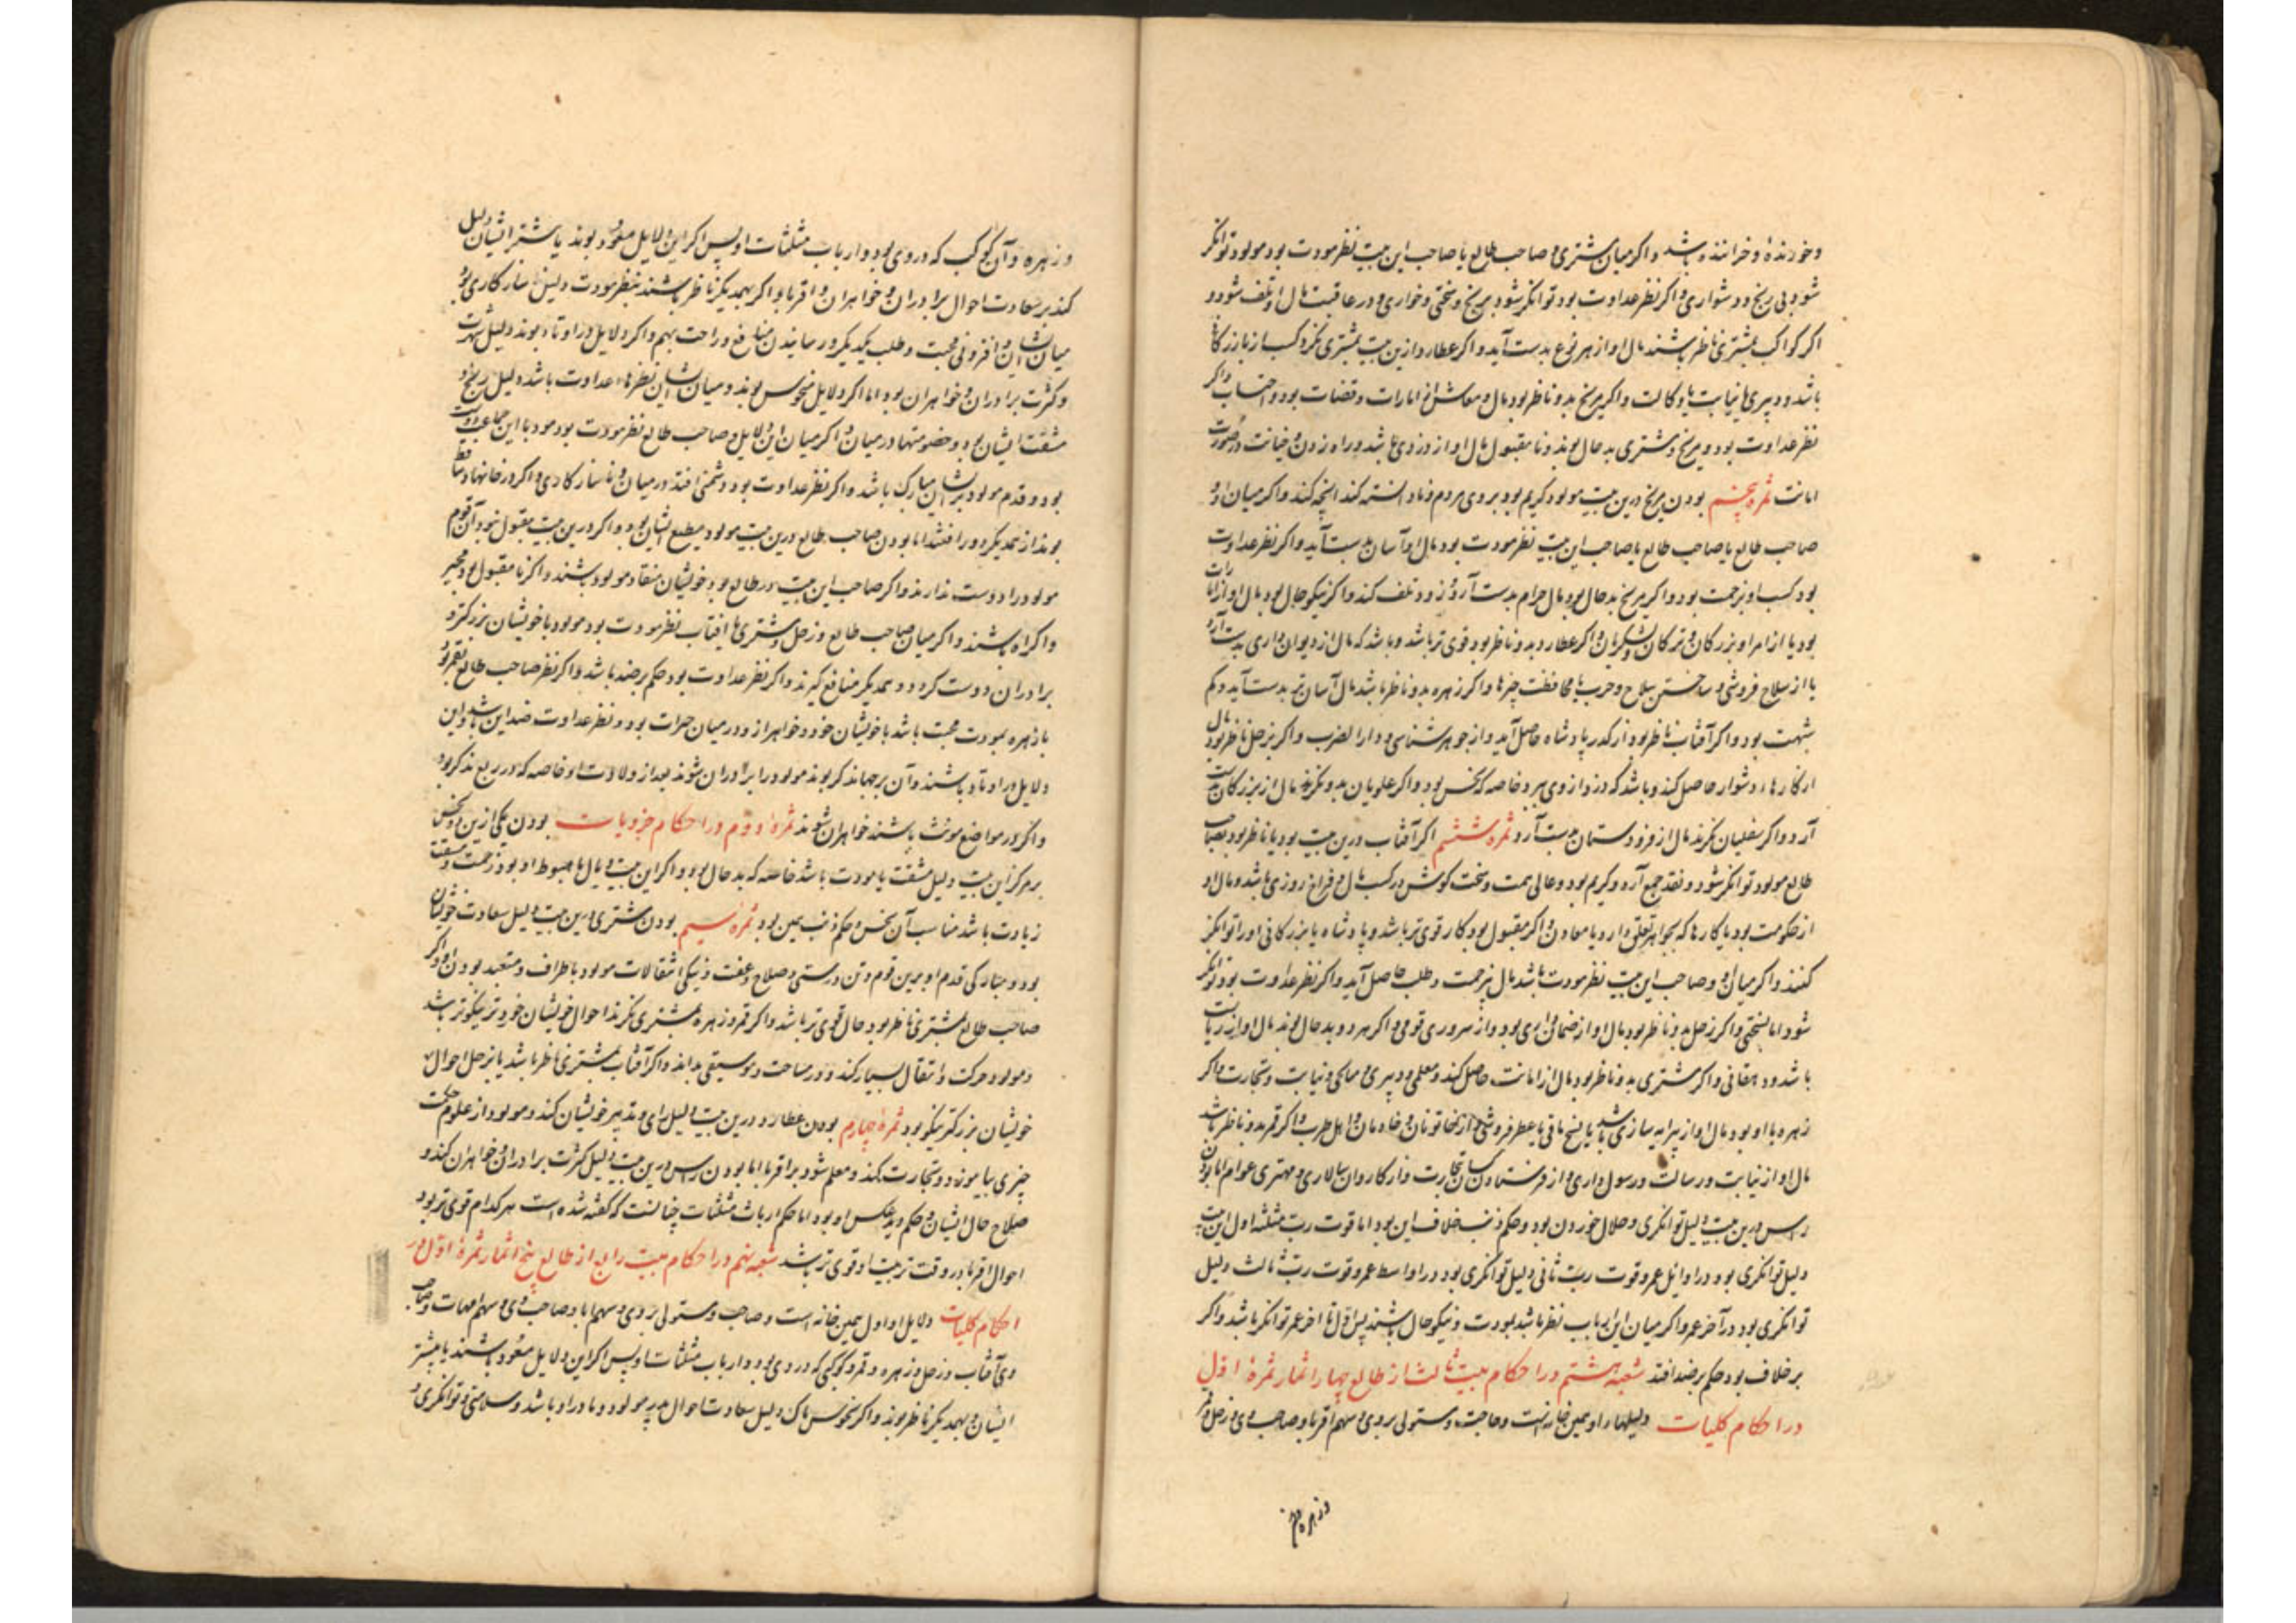 و خورنده و خراننده باشد و اکر میان مشتری و صاحب طالع یا صاحب این بیت نظر مودت بود مولود توانکر
شود بی رنج و دشواری و اکر نظر عداوت بود توانکر شود برنج و سختی و خواری و در عاقبت مال او تلف شود و
اکر کواکب بمشتری ناظر باشند مال او از هر نوع بدست آید و اکر عطارد ازین بیت بمشتری نکرد کسب از بازرکانی
باشد و دبیری یا نیابت یا وکالت و اکر مریخ بدو ناظر بود مال و معاش از امارات و قضات بود و احتساب و اکر
نظر عداوت بود و مریخ و مشتری بد حال بوند و نا مقبول مال او از دزدی باشد و راه زدن و خیانت در صورت
امانت ثمره پنجم بودن مریخ درین بیت مولود کریم بود بروی مردم و نادانسته کند انچه کند و اکر میان او و
صاحب طالع یا صاحب طالع یا صاحب این بیت نظر مودت بود مال او آسان بدست آید و اکر نظر عداوت
بود کسب او بزحمت بود و اکر مریخ بد حال بود مال حرام بدست آرد و زود تلف کند و اکر نیکو حال بود مال او از امارات
بود یا از امرا و بزرکان و ترکان و لشکریان و اکر عطارد بدو ناظر بود قوی تر باشد و باشد که مال از دیوان داری بدست آرد
یا از سلاح فروشی و ساختن سلاح و حرب یا محافظت چیزها و اکر زهره بدو ناظر باشد مال آسان تر بدست آید و کم
شبهت بود و اکر آفتاب ناظر بود از کدر پادشاه حاصل آید و از جوهر شناسی و دار الضرب و اکر زحل ناظر بود مال
از کارهاء دشوار حاصل کند و باشد که دزد از وی ببرد خاصه که نحس بود و اکر علویان بدو نکرند مال از بزرکان بدست
آرد و اکر سفلیان نکرند مال از فرودستان بدست آرد ثمره ششم اکر آفتاب درین بیت بود یا ناظر بود بصاحب
طالع مولود توانکر شود و نقد جمع آرد و کریم بود و عالی همت و سخت کوش در کسب مال و فراخ روزی باشد و مال او
از حکومت بود یا کارها که بجواهر تعلق دارد یا معادن و اکر مقبول بود کار قوی تر باشد و پادشاه یا بزرکانی او را توانکر
کنند و اکر میان او و صاحب این بیت نظر مودت باشد مال بی زحمت و طلب حاصل آید و اکر نظر عداوت بود توانکر
شود اما بسختی و اکر زحل بدو ناظر بود مال او از ضمان داری بود و از سروری قومی و اکر هر دو بد حال بوند مال او از ریاست
باشد و دهقانی و اکر مشتری بدو ناظر بود مال از امانت حاصل کند و معلمی و دبیری و نیابت و تجارت و اکر
زهره با او بود مال او از پیرایه سازی باشد یا عطر فروشی و از خاتونان و خادمان و اهل طرب و اکر قمر بدو ناظر باشد
مال او از نیابت و رسالت و رسول داری و از فرستادن کسان تجارت و از کاروان سالاری و مهتری عوام اما بودن
راس درین بیت دلیل توانکری و حلال خوردن بود و حکم ذنب خلاف این بود اما قوت رب مثلثه اول این بیت
دلیل توانکری بود در اوائل عمر و قوت رب ثانی دلیل توانکری بود در اواسط عمر و قوت رب ثالث دلیل
توانکری بود در آخر عمر و اکر میان این ارباب نظر باشد بمودت و نیکو حال باشند پس از اول تا آخر عمر توانکر باشد و اکر
بر خلاف بود حکم بر ضد افتد شعبه هشتم در احکام بیت ثالث از طالع چهار اثمار ثمره اول
در احکام کلیات دلیلهاء او همین خانه است و صاحبش و مستولی بر وی و سهم اقربا و صاحب وی و زحل و قمر
و زهره و آن
و زهره و آن کوکب که در وی بود و ارباب مثلثات او پس اکر این دلایل مسعود بوند یا بیشتر ایشان دلیل
کند بر سعادت احوال برادران و خواهران و اقربا و اکر بهمدیکر ناظر باشند بنظر مودت دلیل سازکاری بود
میان ایشان و افزونی محبت و طلب یکدیکر و رسانیدن منافع و راحت بهم و اکر دلایل در اوتاد بوند دلیل شهرت
و کثرت برادران و خواهران بود اما اکر دلایل منحوس بوند و میان ایشان نظرهاء عداوت باشد دلیل رنج و
مشقت ایشان بود و خصومتها در میان و اکر میان این دلایل و صاحب طالع نظر مودت بود مولود با این جماعت دوست
بود و قدم مولود بر ایشان مبارک باشد و اکر نظر عداوت بود دشمنی افتد در میان و ناسازکاری و اکر در خانهاء ساقط
بوند از همدیکر دور افتند اما بودن صاحب طالع درین بیت مولود مطیع ایشان بود و اکر درین بیت مقبول نبود آن قوم
مولود را دوست ندارند و اکر صاحب این بیت در طالع بود خویشان منقاد مولود باشند و اکر نا مقبول بود بجبر
و اکراه باشند و اکر میان صاحب طالع و زحل و مشتری یا افتاب نظر مودت بود مولود با خویشان بزرکتر و
برادران دوست کردد و همدیکر منافع کیرند و اکر نظر عداوت بود حکم بر ضد باشد و اکر نظر صاحب طالع بقمر بود
یا زهره بمودت محبت باشد با خویشان خرد و خواهران و در میان حرات بود و نظر عداوت ضد این باشد و این
دلایل در اوتاد باشند و آن برجها مذکر بوند مولود را برادران شوند بعد از ولادت او خاصه که در ربع مذکر بود
و اکر در مواضع مونث باشند خواهران شوند ثمره دوم در احکام جزویات بودن یکی ازین دو نحس
بر مرکز این بیت دلیل مشقت یا مودت باشد خاصه که بد حال بود و اکر این بیت وبال یا هبوط او بود زحمت و مشقت
زیادت باشد مناسب آن نحس و حکم ذنب همین بود ثمره سیم بودن مشتری درین بیت دلیل سعادت خویشان
بود و مبارکی قدم او برین قوم و تن درستی و صلاح و عفت و نیکی انتقالات مولود باطراف و متعبد بودن او و اکر
صاحب طالع بمشتری ناظر بود حال قوی تر باشد و اکر قمر و زهره بمشتری نکرند احوال خویشان خردتر نیکوتر باشد
و مولود حرکت و انتقال بسیار کند و در مساحت و موسیقی بداند و اکر آفتاب بمشتری ناظر باشد یا بزحل احوال
خویشان بزرکتر نیکو بود ثمره چهارم بودن عطارد درین بیت دلیل رای و تدبیر خویشان کند و مولود از علوم حکمت
چیزی بیاموزد و تجارت کند و معلم شود بر اقربا اما بودن راس درین بیت دلیل کثرت برادران و خواهران کند و
صلاح حال ایشان و حکم ذنب عکس او بود اما حکم ارباب مثلثات چنانست که کفته شده است هر کدام قوی تر بود
احوال اقربا در وقت تربیت او قوی تر باشد شعبه نهم در احکام بیت رابع از طالع پنج اثمار ثمره اول در
احکام کلیات دلایل او اول همین خانه است و صاحب و مستولی بر وی و سهم ابا و صاحب وی و سهم امهات و صاحب
وی و آفتاب و زحل و زهره و قمر و کوکبی که در وی بود و ارباب مثلثات او پس اکر این دلایل مسعود باشند یا بیشتر
ایشان و بهمدیکر ناظر بوند و اکر نحوس پاک دلیل سعادت احوال پدر مولود و مادر او باشد و سلامتی و توانکری و